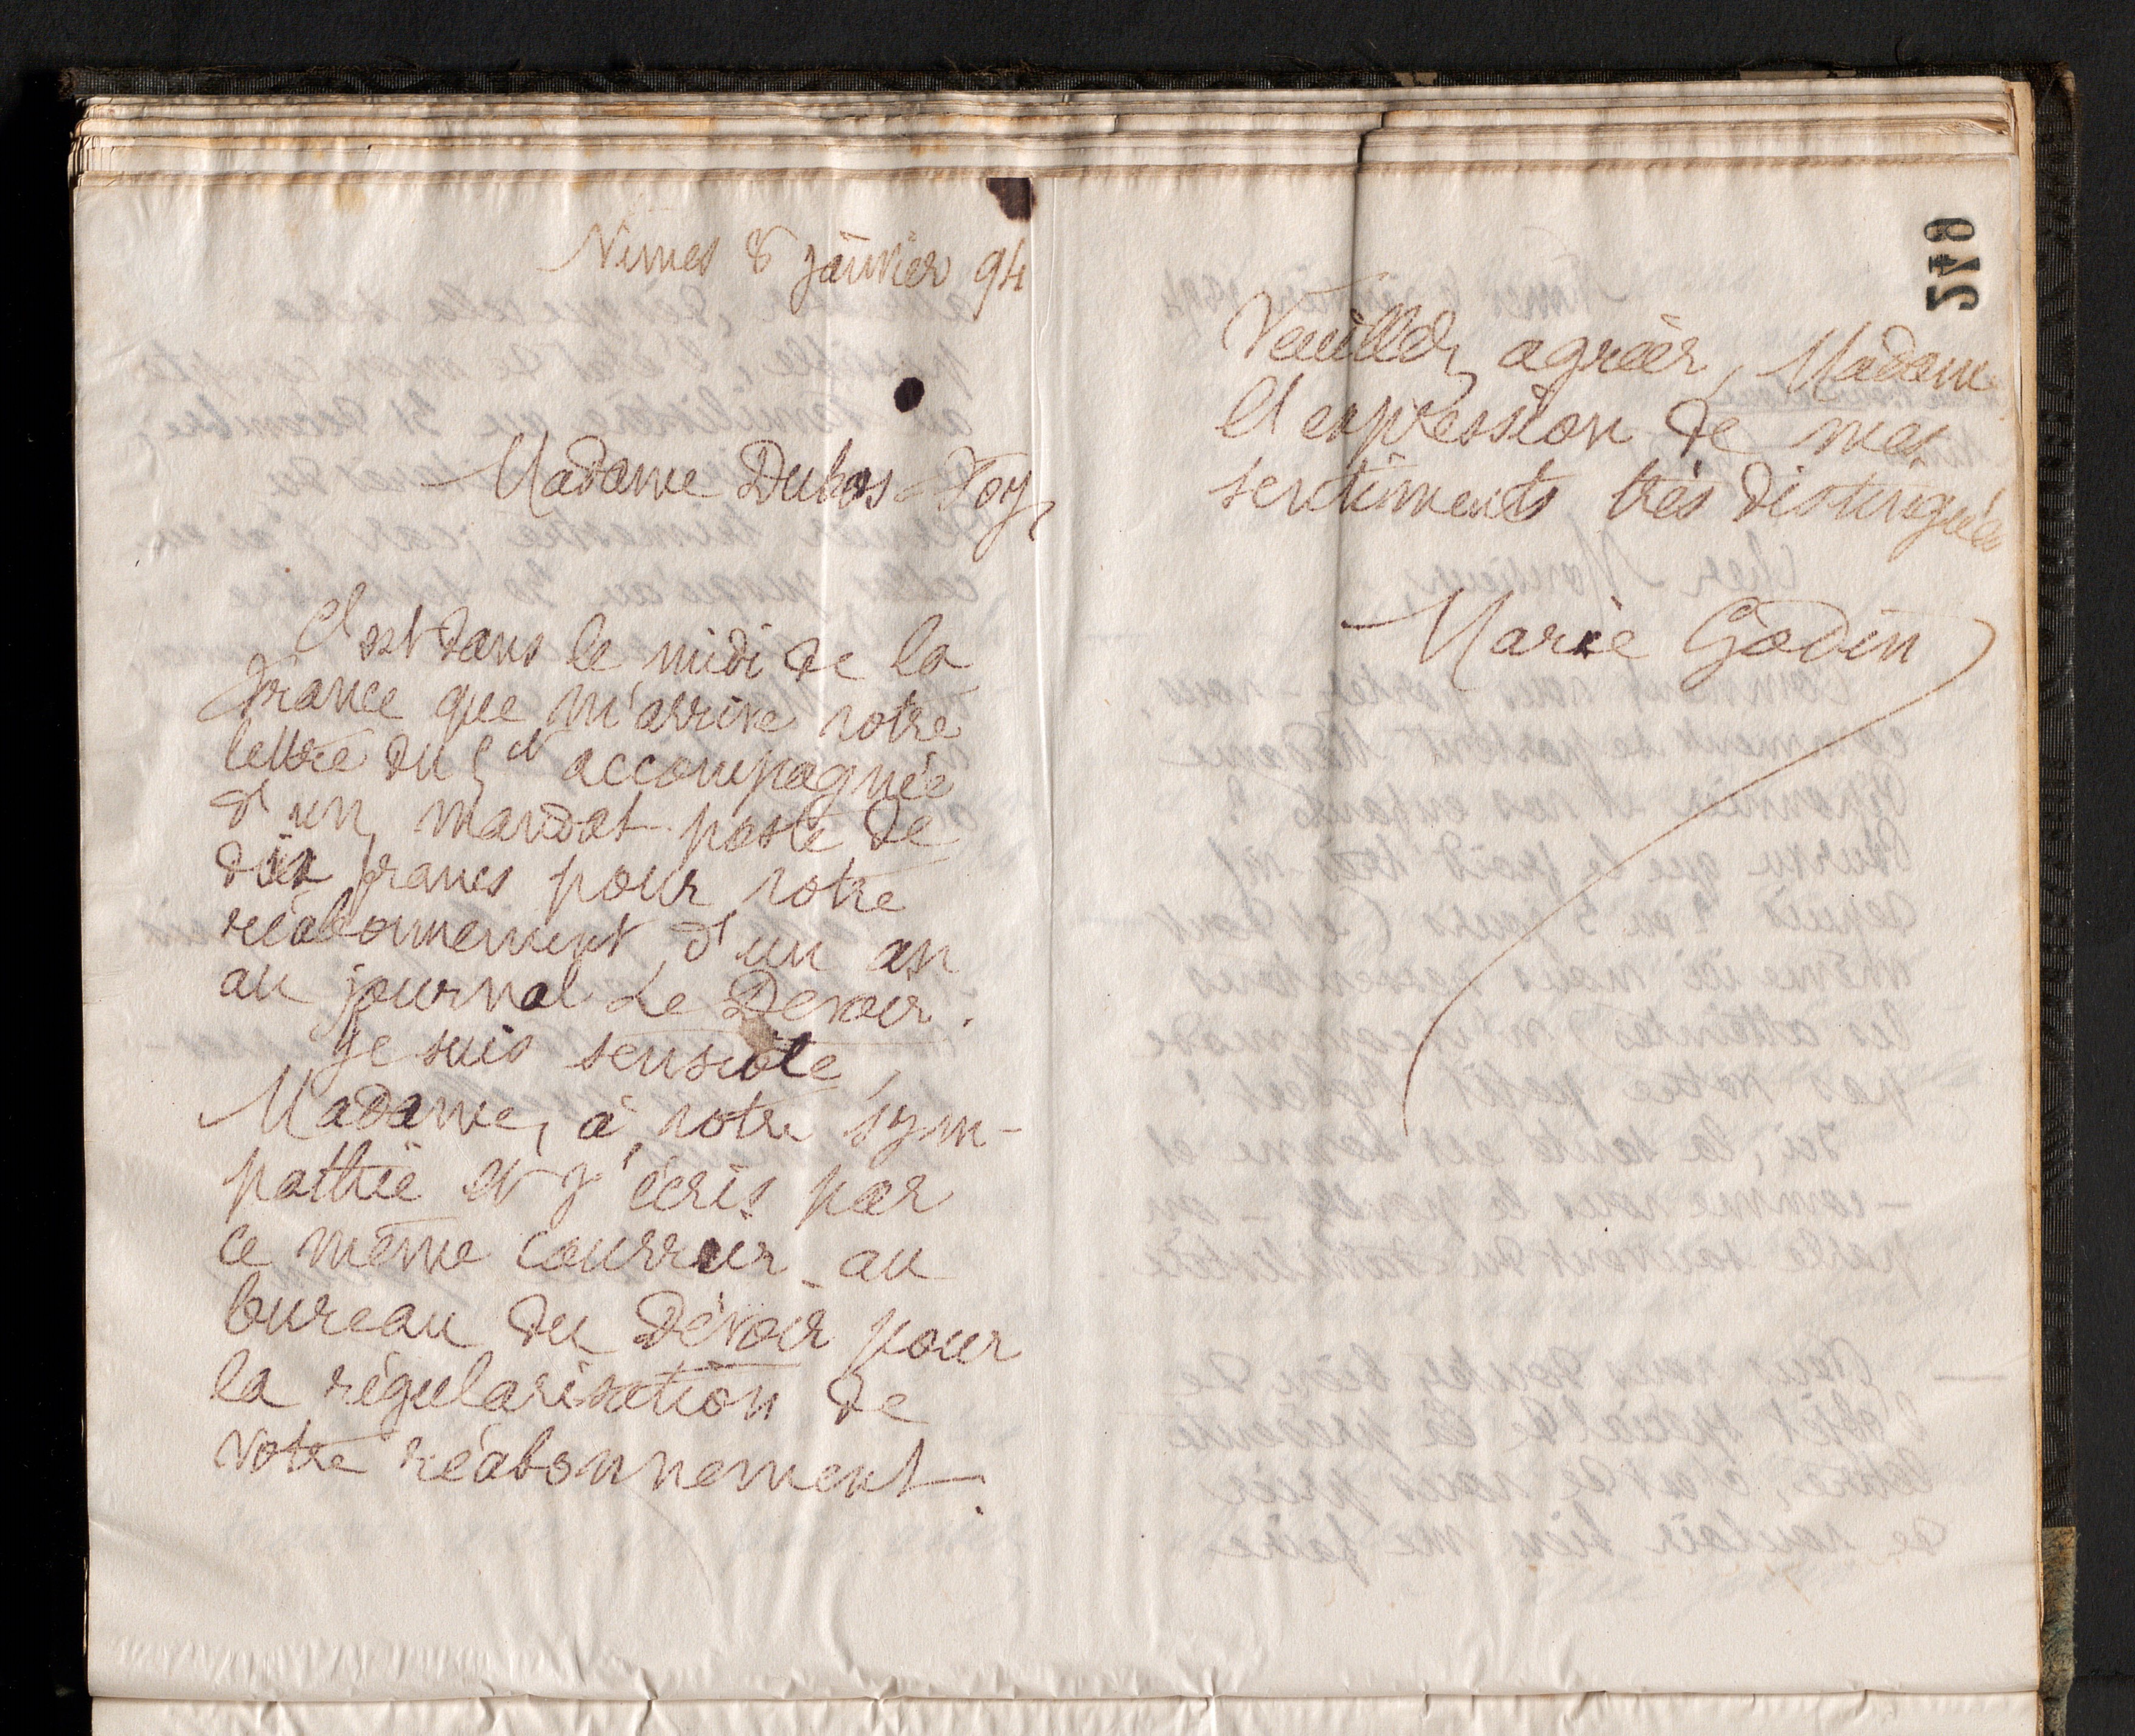 Nîmes 8 janvier 94
Madame Dubos-Foy,
C'est dans le midi de la
France que m'arrive votre
lettre du 5 ct accompagnée
d'un mandat poste de
dix francs pour votre
réabonnement d'un an
au journal Le Devoir.
Je suis sensible,
Madame, à votre sym-
pathie et j'écris par
ce même courrier au
bureau du Devoir pour
la régularisation de
votre réabonnement.
578
Veuillez agréer, Madame
l'expression de mes
sentiments très distingués
Marie Godin